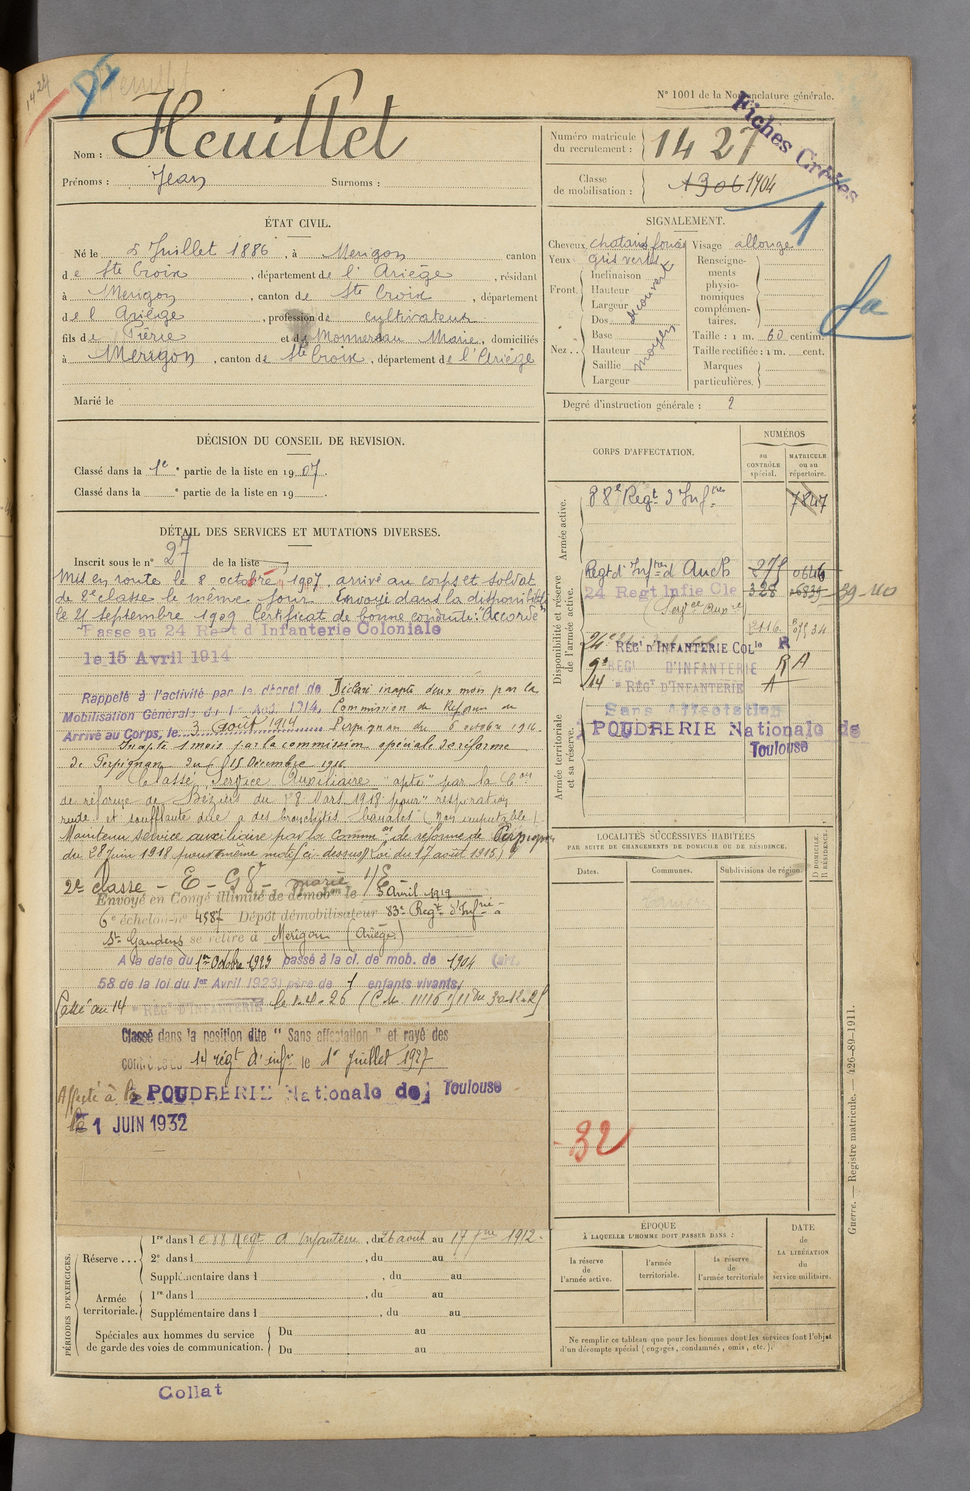 1427
N° 1001 de la Nomenclature générale.
Fiches Croisées
Nom : Heuillet
Prénoms : Jean Surnoms :
Numéro matricule du recrutement : 1427
Classe de mobilisation : 1906 1904
1
ÉTAT CIVIL.
Né le 5 Juillet 1886, à Merigon canton
de Ste Croix, département de l'Ariège, résidant
à Merigon, canton de Ste Croix, département
de l'Ariège, profession de cultivateur
fils de Pierre et de Monnereau Marie, domiciliés
à Merigon, canton de Ste Croix, département de l'Ariège
Marié le
SIGNALEMENT.
Cheveux chatain foncé Visage allongé
Yeux gris verts
Front. Inclinaison
Hauteur
Largeur
découvert
Nez. Dos
Base
Hauteur
Saillie
Largeur
moyen
Renseignements physionomiques complémentaires.
Taille : 1 m. 60 centim.
Taille rectifiée : 1 m. cent.
Marques particulières.
Degré d'instruction générale : 2
DÉCISION DU CONSEIL DE REVISION.
Classé dans la 1e partie de la liste en 1907.
Classé dans la e partie de la liste en 19 .
DÉTAIL DES SERVICES ET MUTATIONS DIVERSES.
Inscrit sous le n° 27 de la liste
Mis en route le 8 octobre 1907. arrivé au corps et soldat
de 2e classe le même jour. Envoyé dans la disponibilité
le 21 septembre 1909 Certificat de bonne conduite "Accordé"
Passe au 24 Regt d'Infanterie Coloniale
le 15 Avril 1914
Rappelé à l'activité par le décret de
Mobilisation Générale du 1er Aout 1914.
Arrivé au Corps, le 3 Août 1914
Déclaré inapte deux mois par la
Commission de Réforme de
Perpignan du 6 octobre 1916
Inapte 1 mois par la commission spéciale de réforme
de Perpignan du 15 Décembre 1916
Classé Service Auxiliaire "apte" par la Con
de réforme de Béziers du 28 Mars 1918 pour "respiration
rude et soufflante due a des bronchites banales (non imputable)
Maintenu service auxiliaire par la common de réforme de Perpignan
du 28 Juin 1918 pour même motif ci-dessus (Loi du 17 août 1915)
2e classe - E -
Envoyé en Congé illimité de démobon le 5 avril 1919
6e échelon n° 4587 Dépôt démobilisateur 83e Regt d'Infrie à
St Gaudens se retire à Merigon (Ariège)
A la date du 1er Octobre 1929 passé à la cl. de mob. de 1904 (art.
58 de la loi du 1er Avril 1923) père de 1 enfants vivants.
Passé au 14e RÉGt D'INFANTERIE
Classé dans la position dite "Sans affectation" et rayé des
contrôles 14 régt d'infie le 1er Juillet 1927
Affecté à POUDRERIE Nationale de Toulouse
le 1 JUIN 1932
CORPS D'AFFECTATION.
NUMÉROS
au CONTRÔLE spécial.
MATRICULE ou au répertoire.
Armée active.
88e Régt d'Infrie
7847
Disponibilité et réserve de l'armée active.
Regt d'Infrie d'Auch 275 0646
24 Regt Infie Cle 328
24e RÉGt D'INFANTERIE COLle R
RÉGt D'INFANTERIE R A
14e RÉGt D'INFANTERIE A
Armée territoriale et sa réserve.
Sans Affectation
POUDRERIE Nationale de
Toulouse
LOCALITÉS SUCCESSIVES HABITÉES
PAR SUITE DE CHANGEMENTS DE DOMICILE OU DE RÉSIDENCE.
Dates. Communes. Subdivisions de région. D DOMICILE. R RÉSIDENCE.
32
PÉRIODES D'EXERCICES.
Réserve... 1re dans le 88 Régt d'Infanterie, du 26 août au 17 7bre 1912.
2e dans l , du au
Supplémentaire dans l , du au
Armée territoriale. 1re dans l , du au
Supplémentaire dans l , du au
Spéciales aux hommes du service de garde des voies de communication. Du au
Du au
ÉPOQUE
À LAQUELLE L'HOMME DOIT PASSER DANS :
la réserve de l'armée active.
l'armée territoriale.
la réserve de l'armée territoriale
DATE de LA LIBÉRATION du service militaire.
Ne remplir ce tableau que pour les hommes dont les services font l'objet
d'un décompte spécial (engagés, condamnés, omis, etc.).
Guerre. — Registre matricule. — 426-89-1911.
Collat